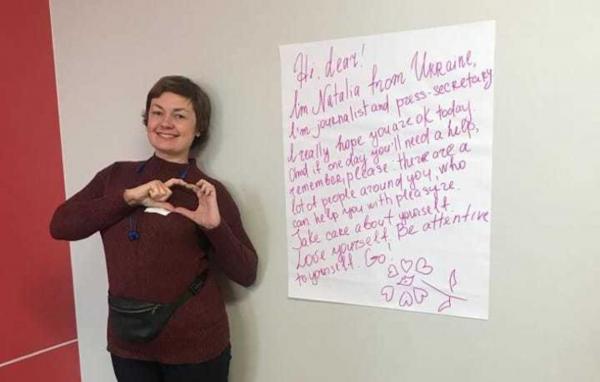 Hi, dear!
I'm Natalia from Ukraine,
I'm journalist and press-secretary
I really hope you are ok today
And if one day you'll need a help,
remember, please: there are a
lot of people around you, who
can help you with pleasyre.
Take care about yourself
Love yourself. Be attentive
to yourself. Go!